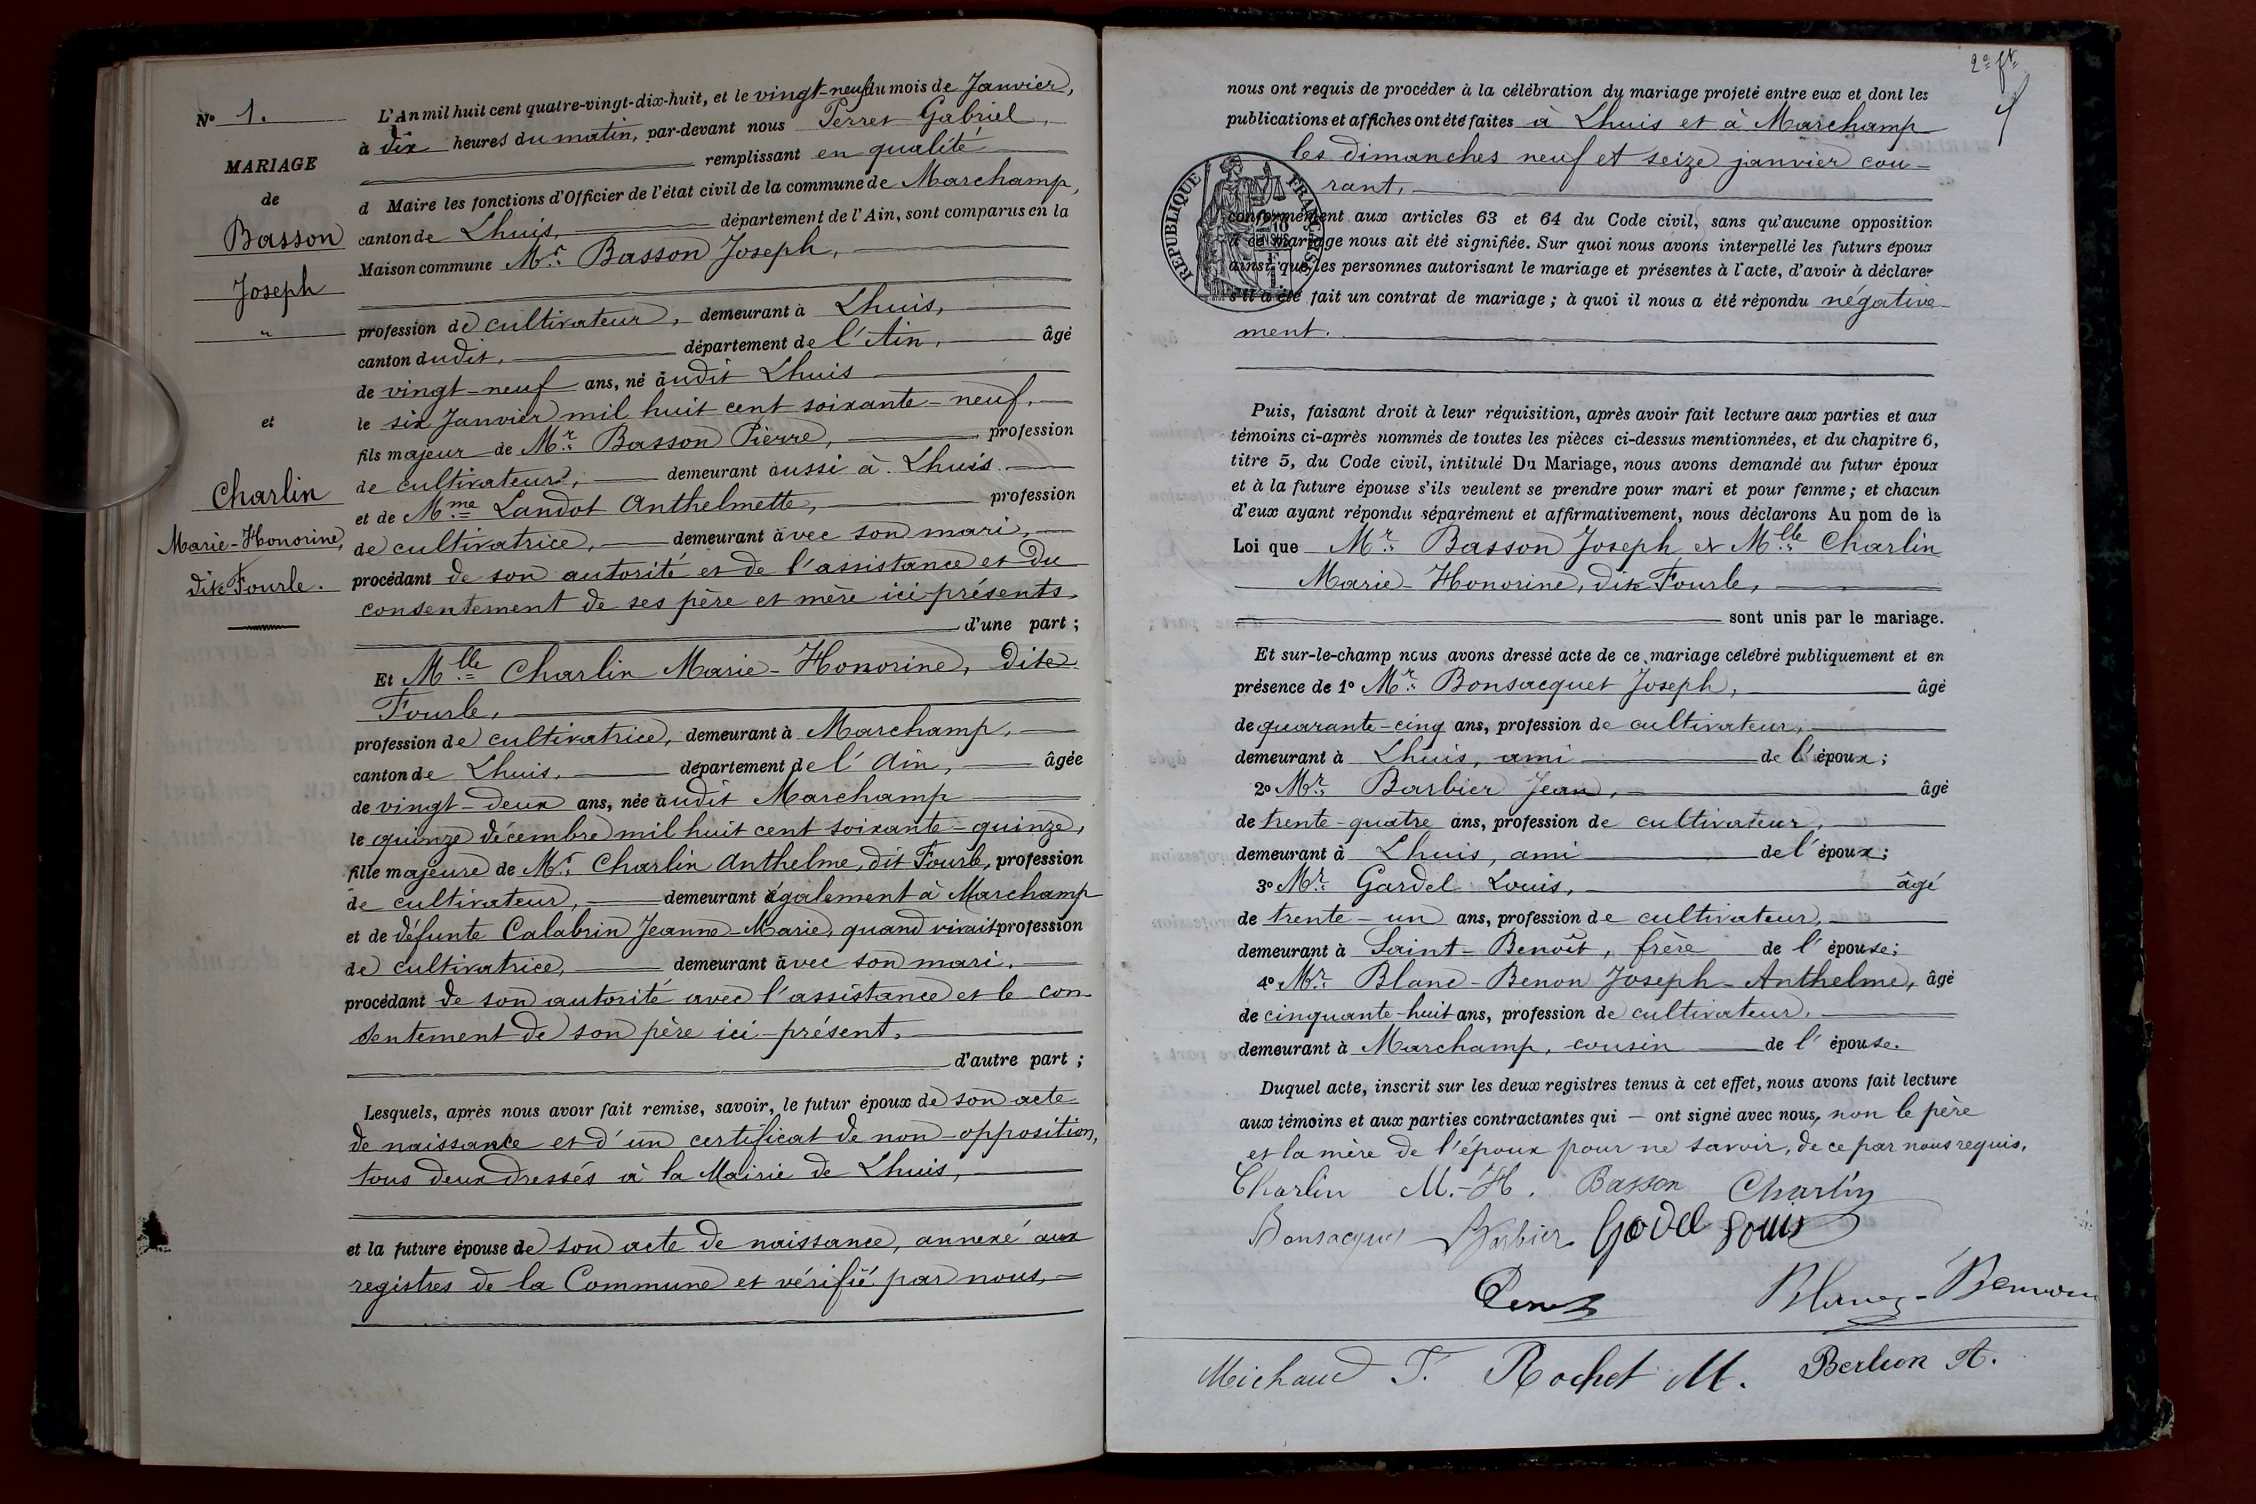 N° 1.
MARIAGE
de
Basson
Joseph
"
et
Charlin
Marie-Honorine,
dite Fourle.
L'An mil huit cent quatre-vingt-dix-huit, et le vingt-neuf du mois de Janvier,
à dix heures du matin, par-devant nous Perret Gabriel,
remplissant en qualité
d Maire les fonctions d'Officier de l'état civil de la commune de Marchamp,
canton de Lhuis, département de l'Ain, sont comparus en la
Maison commune Mr. Basson Joseph,
profession de cultivateur, demeurant à Lhuis,
canton dudit, département de l'Ain, âgé
de vingt-neuf ans, né audit Lhuis
le six Janvier mil huit cent soixante-neuf,
fils majeur de Mr. Basson Pierre, profession
de cultivateur, demeurant aussi à Lhuis.
et de Mme Landot Anthelmette, profession
de cultivatrice, demeurant avec son mari,
procédant de son autorité et de l'assistance et du
consentement de ses père et mère ici-présents,
d'une part ;
Et Mlle Charlin Marie-Honorine, dite
Fourle,
profession de cultivatrice, demeurant à Marchamp,
canton de Lhuis, département de l'Ain, âgée
de vingt-deux ans, née audit Marchamp
le quinze décembre mil huit cent soixante-quinze,
fille majeure de Mr. Charlin Anthelme, dit Fourle, profession
de cultivateur, demeurant également à Marchamp
et de défunte Calabrin Jeanne-Marie, quand vivait profession
de cultivatrice, demeurant avec son mari.
procédant de son autorité avec l'assistance et le con-
sentement de son père ici-présent,
d'autre part ;
Lesquels, après nous avoir fait remise, savoir, le futur époux de son acte
de naissance et d'un certificat de non-opposition,
tous deux dressés à la Mairie de Lhuis,
et la future épouse de son acte de naissance, annexé aux
registres de la Commune et vérifié par nous,
2e ft.
nous ont requis de procéder à la célébration du mariage projeté entre eux et dont les
publications et affiches ont été faites à Lhuis et à Marchamp
les dimanches neuf et seize janvier cou-
rant,
RÉPUBLIQUE FRANÇAISE
conformément aux articles 63 et 64 du Code civil, sans qu'aucune opposition
à ce mariage nous ait été signifiée. Sur quoi nous avons interpellé les futurs époux
ainsi que les personnes autorisant le mariage et présentes à l'acte, d'avoir à déclarer
s'il a été fait un contrat de mariage ; à quoi il nous a été répondu négative-
ment.
Puis, faisant droit à leur réquisition, après avoir fait lecture aux parties et aux
témoins ci-après nommés de toutes les pièces ci-dessus mentionnées, et du chapitre 6,
titre 5, du Code civil, intitulé Du Mariage, nous avons demandé au futur époux
et à la future épouse s'ils veulent se prendre pour mari et pour femme ; et chacun
d'eux ayant répondu séparément et affirmativement, nous déclarons Au nom de la
Loi que Mr. Basson Joseph et Mlle Charlin
Marie-Honorine, dite Fourle,
sont unis par le mariage.
Et sur-le-champ nous avons dressé acte de ce mariage célébré publiquement et en
présence de 1° Mr. Bonsacquet Joseph, âgé
de quarante-cinq ans, profession de cultivateur,
demeurant à Lhuis, ami de l'époux ;
2° Mr. Barbier Jean, âgé
de trente-quatre ans, profession de cultivateur,
demeurant à Lhuis, ami de l'époux ;
3° Mr. Gardel Louis, âgé
de trente-un ans, profession de cultivateur,
demeurant à Saint-Benoît, frère de l'épouse ;
4° Mr. Blanc-Benon Joseph-Anthelme, âgé
de cinquante-huit ans, profession de cultivateur,
demeurant à Marchamp, cousin de l'épouse.
Duquel acte, inscrit sur les deux registres tenus à cet effet, nous avons fait lecture
aux témoins et aux parties contractantes qui — ont signé avec nous, non le père
et la mère de l'époux pour ne savoir, de ce par nous requis.
Charlin M.-H. Basson Charlin
Bonsacquet Barbier Godel Louis
Perret Blanc-Benon
Michaud F. Rochet M. Berlion A.